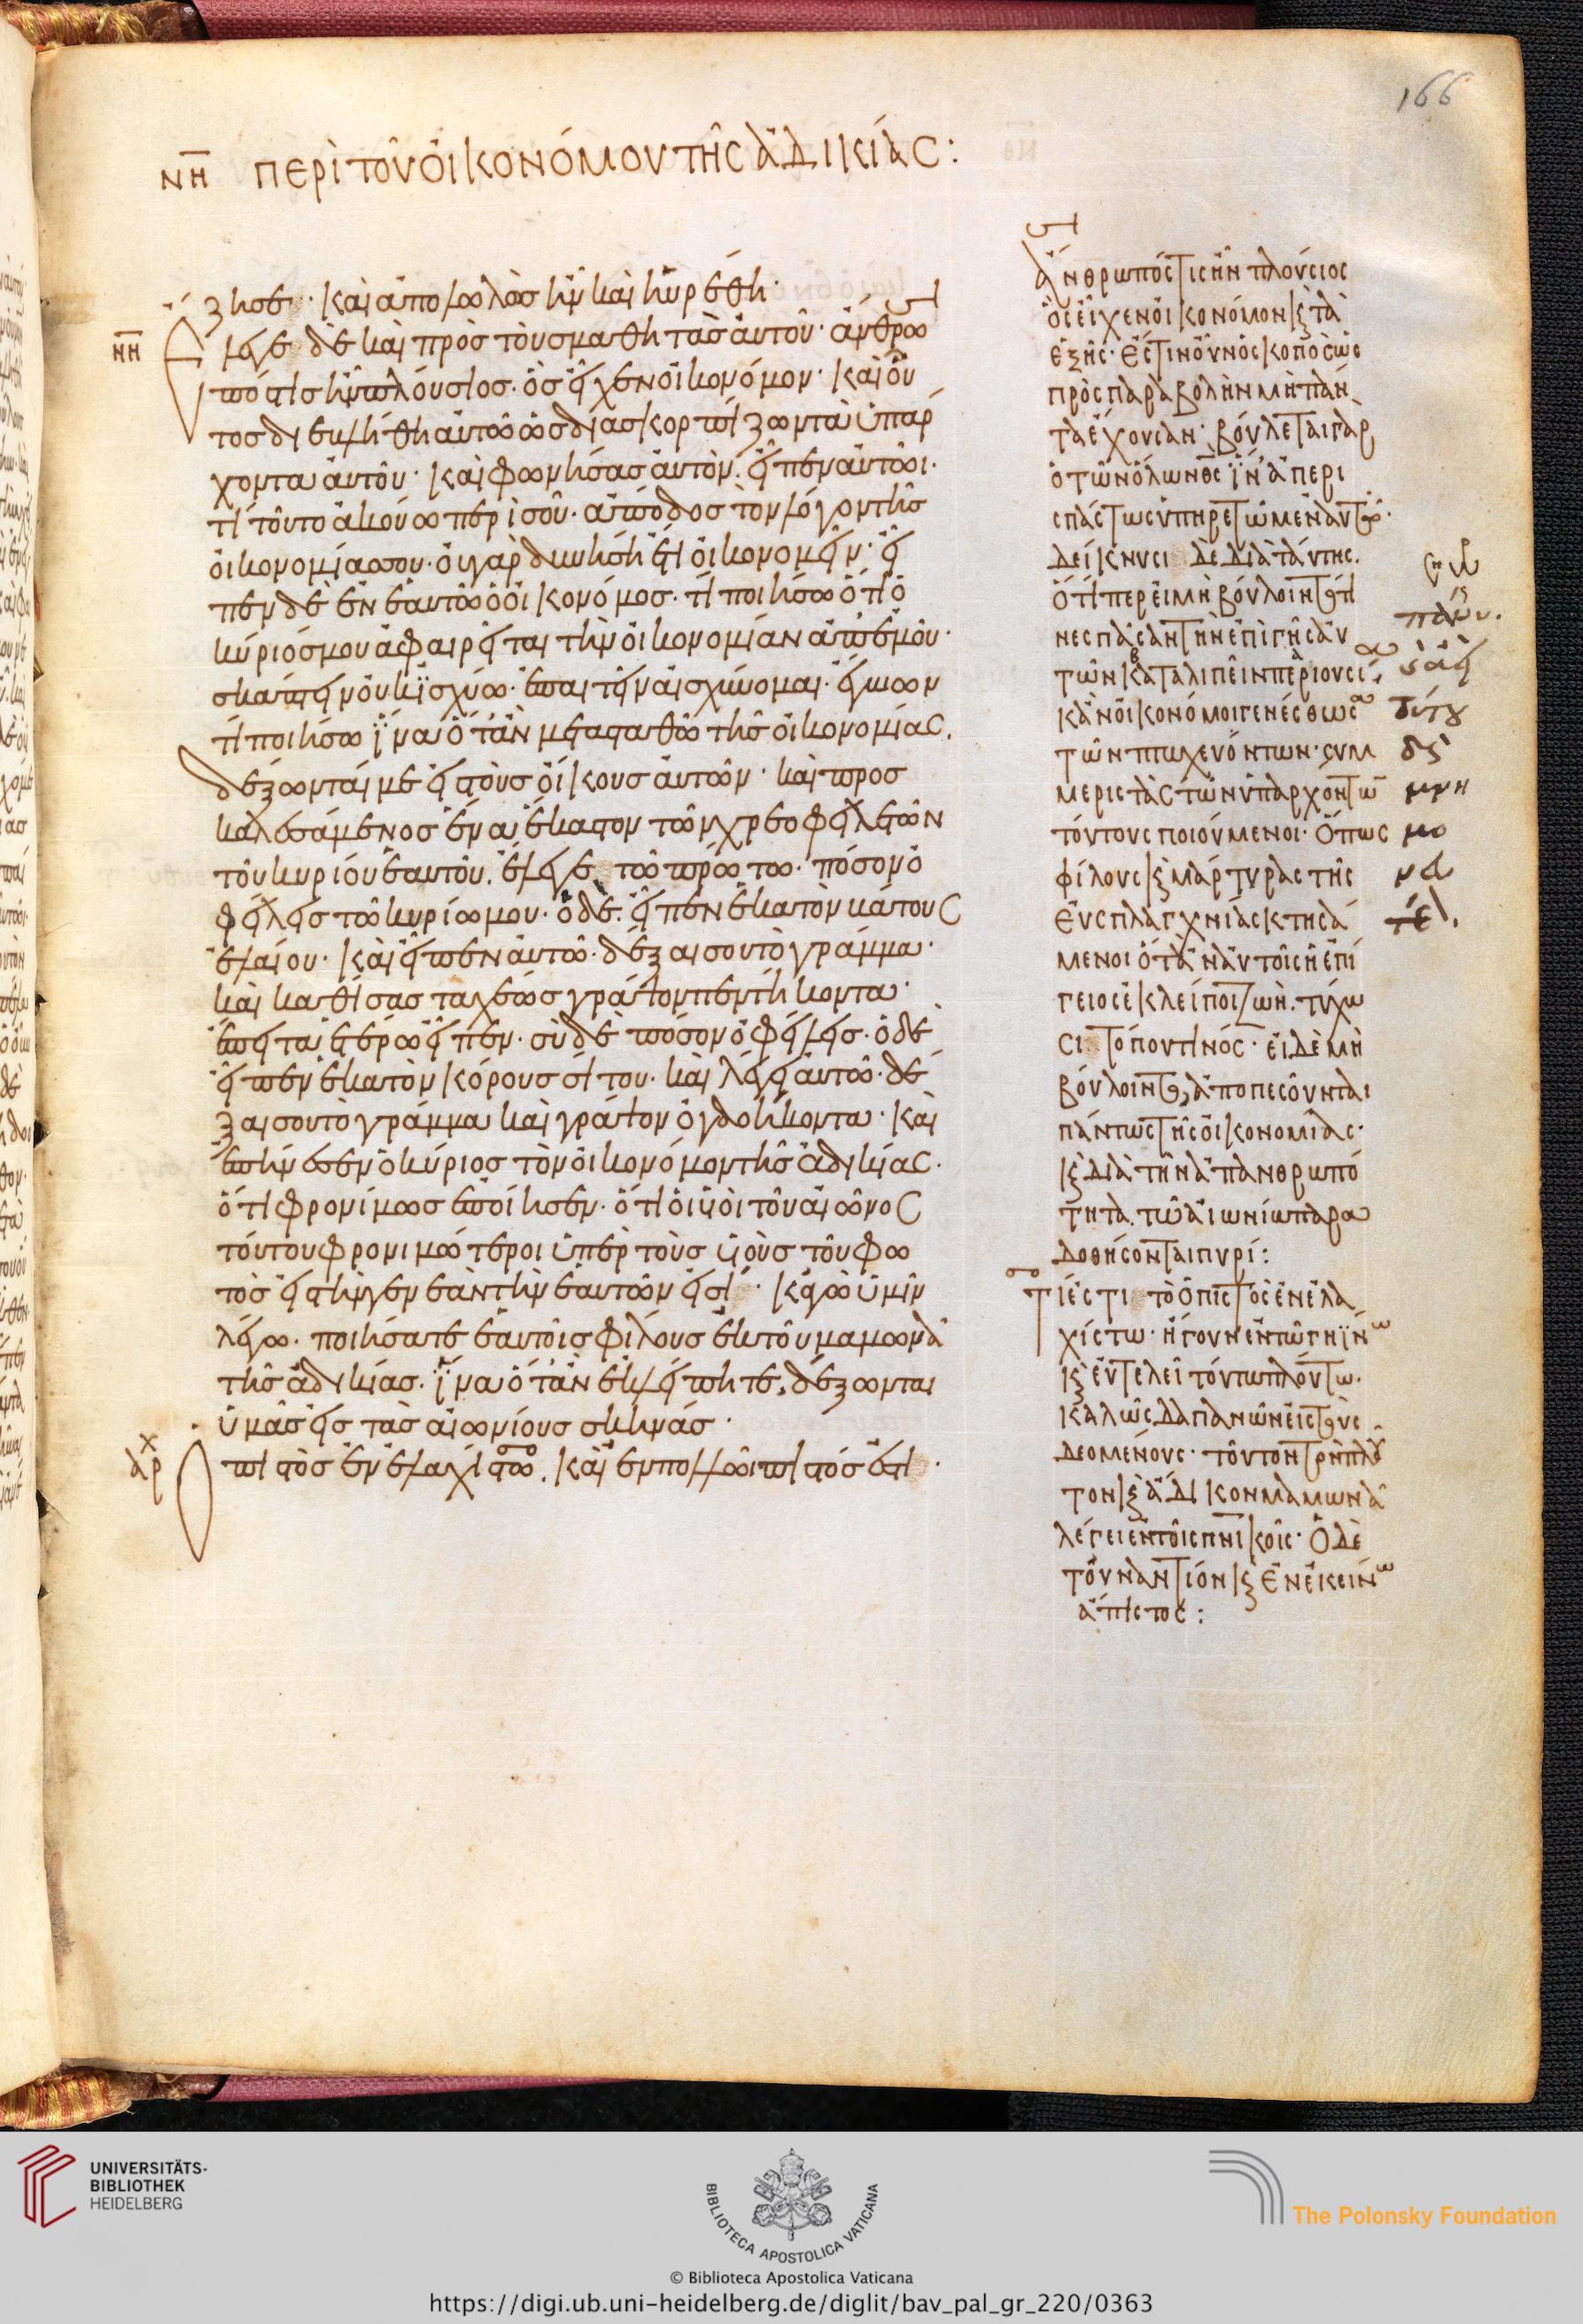 166
νη περὶ τοῦ οἰκονόμου τῆς ἀδικίας:
ζησε· καὶ ἀπολωλὼς ἦν καὶ ηὑρέθη·
νη Ἔλεγε δὲ καὶ πρὸς τοὺς μαθητὰς αὐτοῦ· ἄνθρω
πός τις ἦν πλούσιος· ὃς εἶχεν οἰκονόμον· καὶ οὗ
τος διεβλήθη αὐτῶ ὡς διασκορπίζων τὰ ὑπάρ
χοντα αὐτοῦ· καὶ φωνήσας αὐτὸν· εἶπεν αὐτῶι·
τί τοῦτο ἀκούω περὶ σοῦ· ἀπόδος τὸν λόγον τῆς
οἰκονομίας σου· οὐ γὰρ δυνήση ἔτι οἰκονομεῖν· εἶ
πεν δὲ ἐν ἑαυτῶ ὁ οἰκονόμος· τί ποιήσω ὅτι ὁ
κύριός μου ἀφαιρεῖται τὴν οἰκονομίαν ἀπ' ἐμοῦ·
σκάπτειν οὐκ ἰσχύω· ἐπαιτεῖν αἰσχύνομαι· ἔγνων
τί ποιήσω ἵνα ὅταν μετασταθῶ τῆς οἰκονομίας,
δέξωνταί με εἰς τοὺς οἴκους αὐτῶν· καὶ προς
καλεσάμενος ἕνα ἕκαστον τῶν χρεοφειλετῶν
τοῦ κυρίου ἑαυτοῦ, ἔλεγε τῶ πρώτω· πόσον ὀ
φείλεις τῶ κυρίω μου· ὁ δὲ· εἶπεν ἑκατὸν βάτους
ἐλαίου· καὶ εἶπεν αὐτῶ· δέξαι σου τὸ γράμμα·
καὶ καθίσας ταχέως γράψον πεντήκοντα·
ἔπειτα ἑτέρω εἶπεν· σὺ δὲ πόσον ὀφείλεις· ὁ δὲ
εἶπεν ἑκατὸν κόρους σίτου· καὶ λέγει αὐτῶ· δέ
ξαι σου τὸ γράμμα καὶ γράψον ὀγδοήκοντα· καὶ
ἐπήνεσεν ὁ κύριος τὸν οἰκονόμον τῆς ἀδικίας·
ὅτι φρονίμως ἐποίησεν· ὅτι οἱ υἱοὶ τοῦ αἰῶνος
τούτου φρονιμώτεροι ὑπὲρ τοὺς υἱοὺς τοῦ φω
τὸς εἰς τὴν γενεὰν τὴν ἑαυτῶν εἰσί· κἀγὼ ὑμῖν
λέγω· ποιήσατε ἑαυτοῖς φίλους ἐκ τοῦ μαμωνᾶ
τῆς ἀδικίας· ἵνα ὅταν ἐκλείπητε, δέξωνται
ὑμᾶς εἰς τὰς αἰωνίους σκηνάς·
ἀρχ Ὁ πιστὸς ἐν ἐλαχίστω, καὶ ἐν πολλῶι πιστός ἐστι·
Ἄνθρωπός τις ἦν πλούσιος
ὃς εἶχεν οἰκονόμον κ τὰ
ἑξῆς· ἔστιν οὖν ὁ σκοπὸς ὡς
πρὸς παραβολὴν μὴ πάν
τα ἔχουσαν· βούλεται γὰρ
ὁ τῶν ὅλων θς ἵν' ἀπερι
σπάστως ὑπηρετῶμεν αὐτῶ·
δείκνυσι δὲ διὰ ταύτης·
ὅτι περ εἰ μὴ βούλοιντό τι
νες πᾶσαν τὴν ἐπὶ γῆς αὐ
τῶν καταλιπεῖν περιουσί
κἂν οἰκονόμοι γενέσθωσ
τῶν πτωχευόντων· συμ
μεριστὰς τῶν ὑπαρχόντω
τούτους ποιούμενοι· ὅπως
φίλους κ μάρτυρας τῆς
εὐσπλαγχνίας κτησά
μενοι ὅταν αὐτοῖς ἡ ἐπί
γειος ἐκλείποι ζωὴ· τύχω
σι τόπου τινός· εἰ δὲ μὴ
βούλοιντο, ἀποπεσοῦνται
πάντως τῆς οἰκονομίας·
κ διὰ τὴν ἀπανθρωπό
τητα· τῶ αἰωνίω παρα
δοθήσονται πυρί:
Τί ἐστι τὸ ὁ πιστὸς ἐν ἐλα
χίστω· ἤγουν ἐν τῶ γηΐνω
κ εὐτελεῖ τούτω πλούτω·
καλῶς δαπανῶν εἰς τοὺς
δεομένους· τοῦτον γὰρ πλοῦ
τον κ ἄδικον μαμωνᾶ
λέγει ἐν τοῖς πνικοῖς· ὁ δὲ
τοὐναντίον κ ἐν ἐκείνω
ἄπιστος:
UNIVERSITÄTS-
BIBLIOTHEK
HEIDELBERG
BIBLIOTECA APOSTOLICA VATICANA
The Polonsky Foundation
© Biblioteca Apostolica Vaticana
https://digi.ub.uni-heidelberg.de/diglit/bav_pal_gr_220/0363